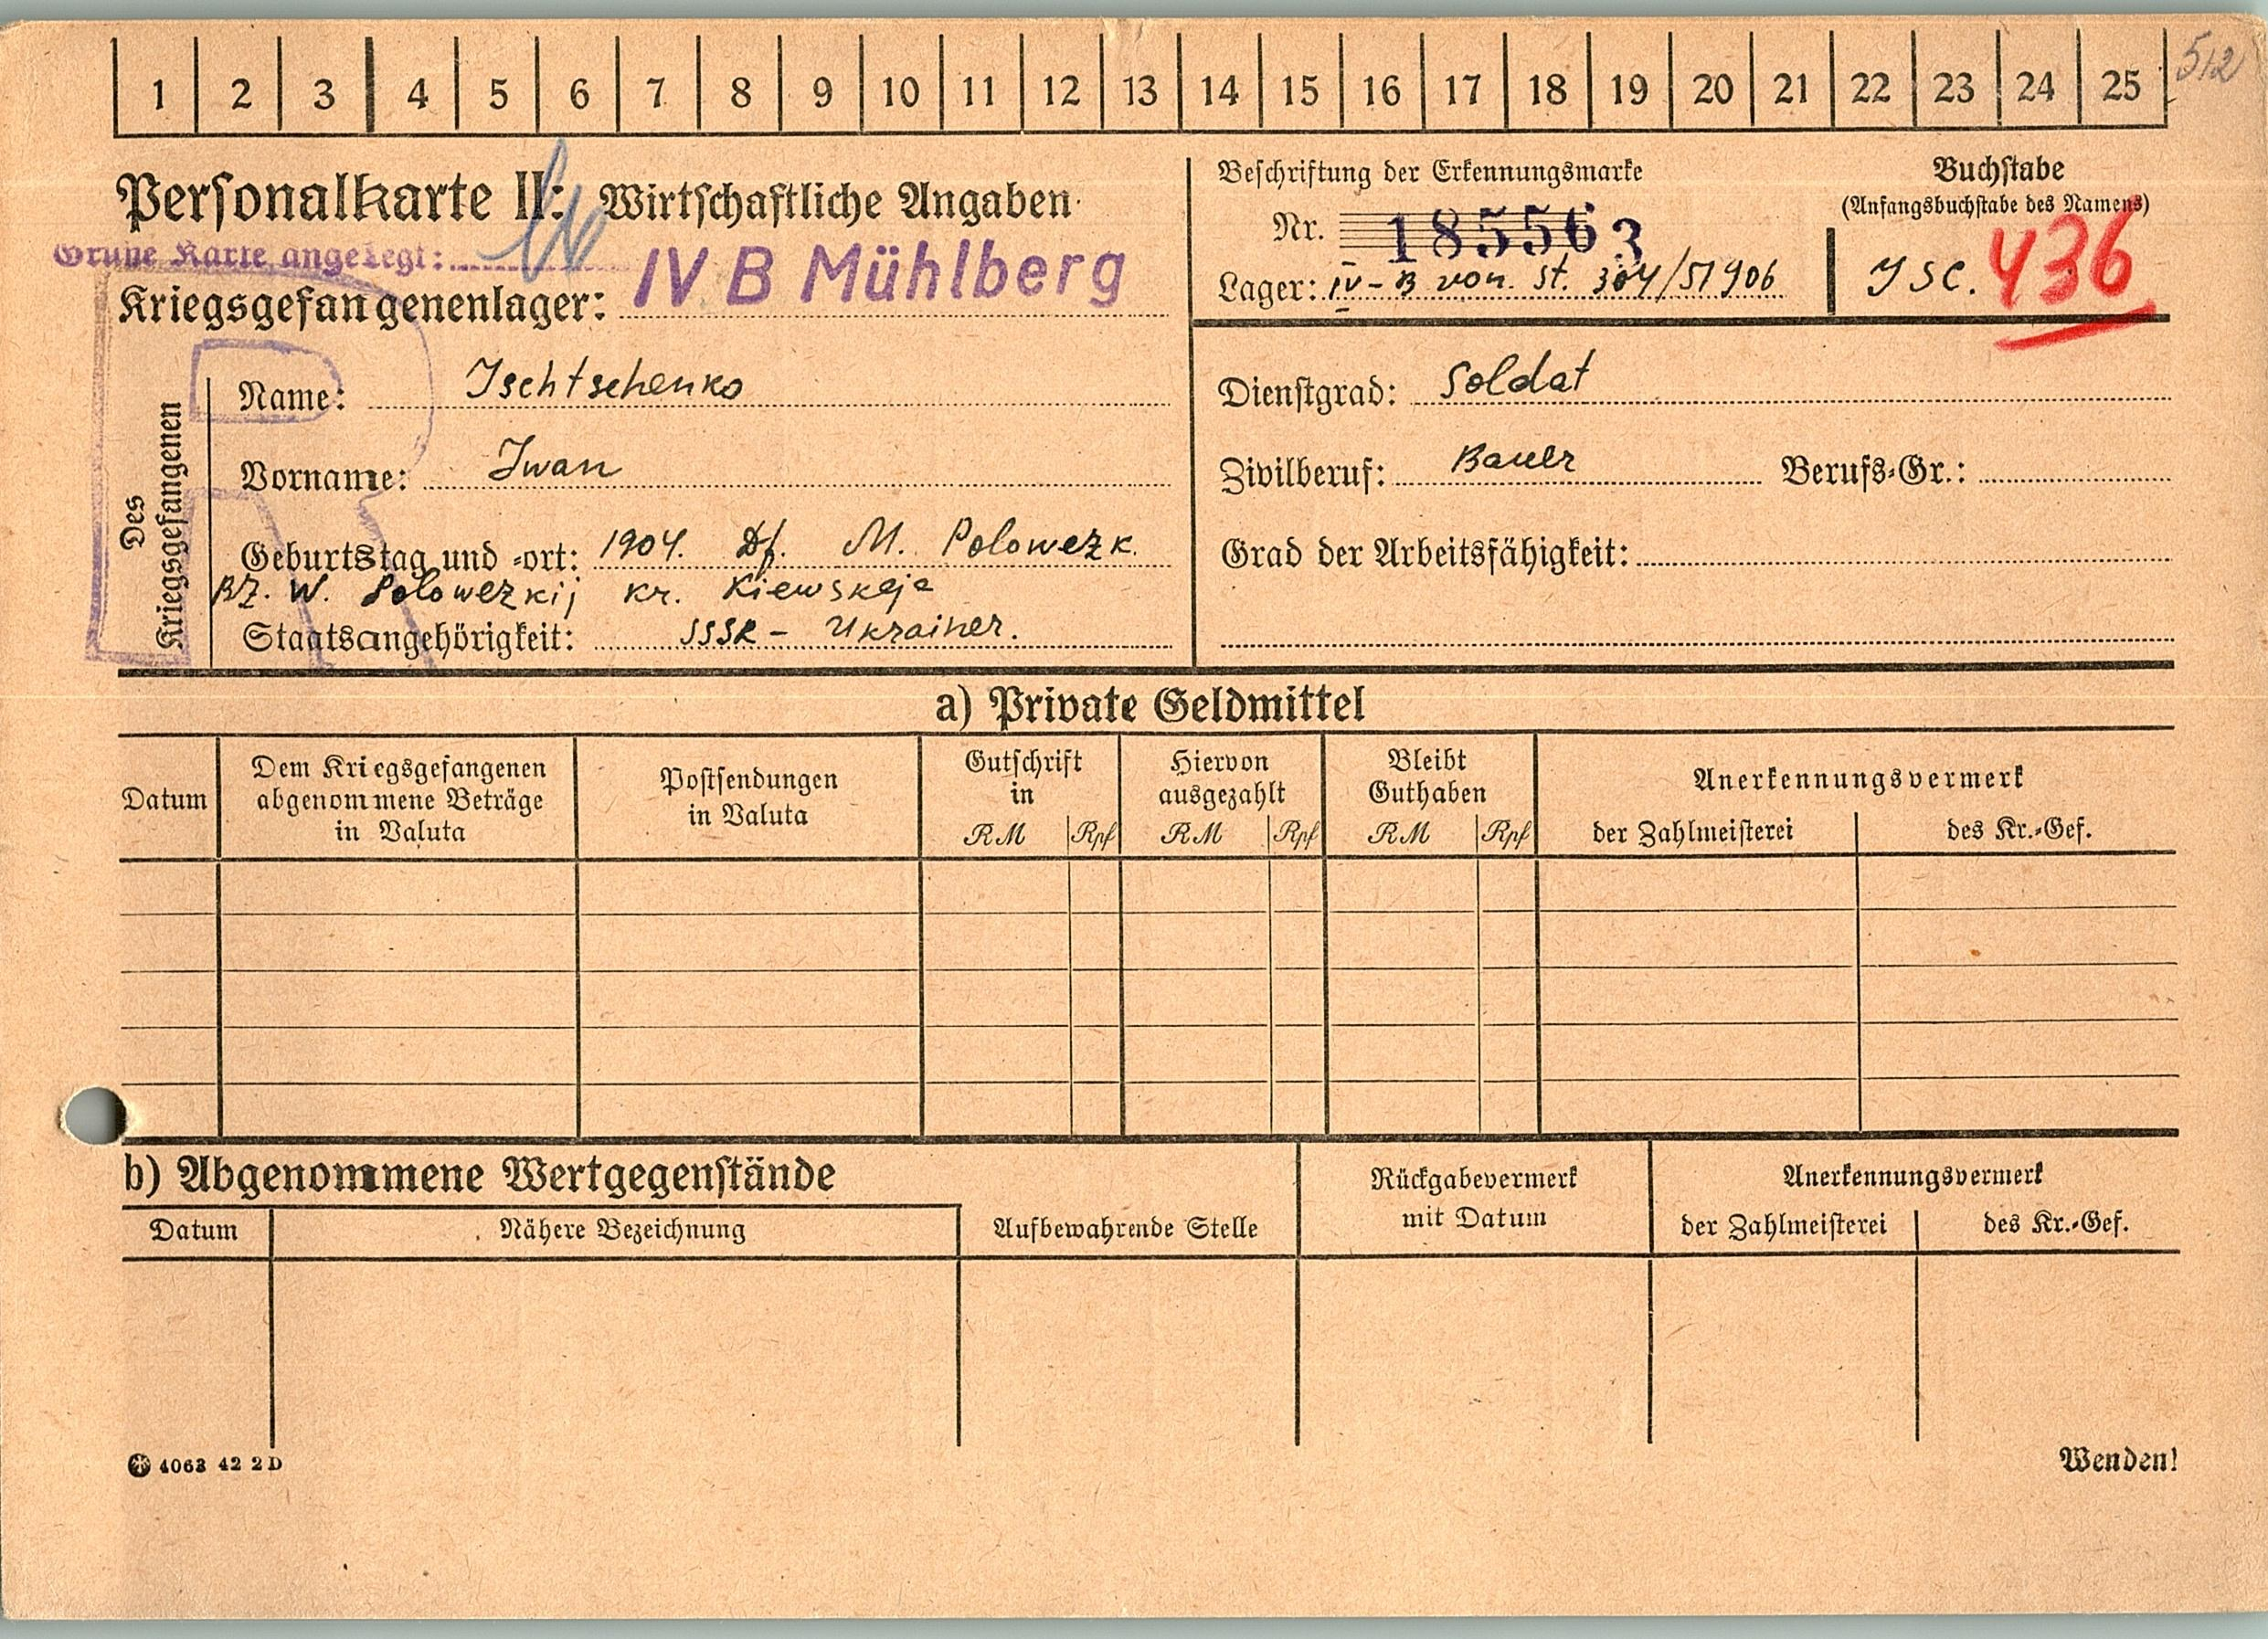 1 2 3 4 5 6 7 8 9 10 11 12 13 14 15 16 17 18 19 20 21 22 23 24 25
512
Personalkarte II: Wirtschaftliche Angaben
Grüne Karte angelegt:
Kriegsgefangenenlager: IV B Mühlberg
Beschriftung der Erkennungsmarke
Nr. 185563
Lager: IV-B von. St. 304/51906
Buchstabe
(Anfangsbuchstabe des Namens)
Isc. 436
Des Kriegsgefangenen
Name: Ischtschenko
Vorname: Iwan
Geburtstag und -ort: 1904. Df. M. Polowezk.
BZ. W. Polowezkij kr. Kiewskaja
Staatsangehörigkeit: SSSR - Ukrainer.
Dienstgrad: Soldat
Zivilberuf: Bauer Berufs-Gr.:
Grad der Arbeitsfähigkeit:
a) Private Geldmittel
Datum
Dem Kriegsgefangenen
abgenommene Beträge
in Valuta
Postsendungen
in Valuta
Gutschrift
in
RM Rpf
Hiervon
ausgezahlt
RM Rpf
Bleibt
Guthaben
RM Rpf
Anerkennungsvermerk
der Zahlmeisterei des Kr.-Gef.
b) Abgenommene Wertgegenstände
Datum Nähere Bezeichnung Aufbewahrende Stelle
Rückgabevermerk
mit Datum
Anerkennungsvermerk
der Zahlmeisterei des Kr.-Gef.
4063 42 2 D
Wenden!